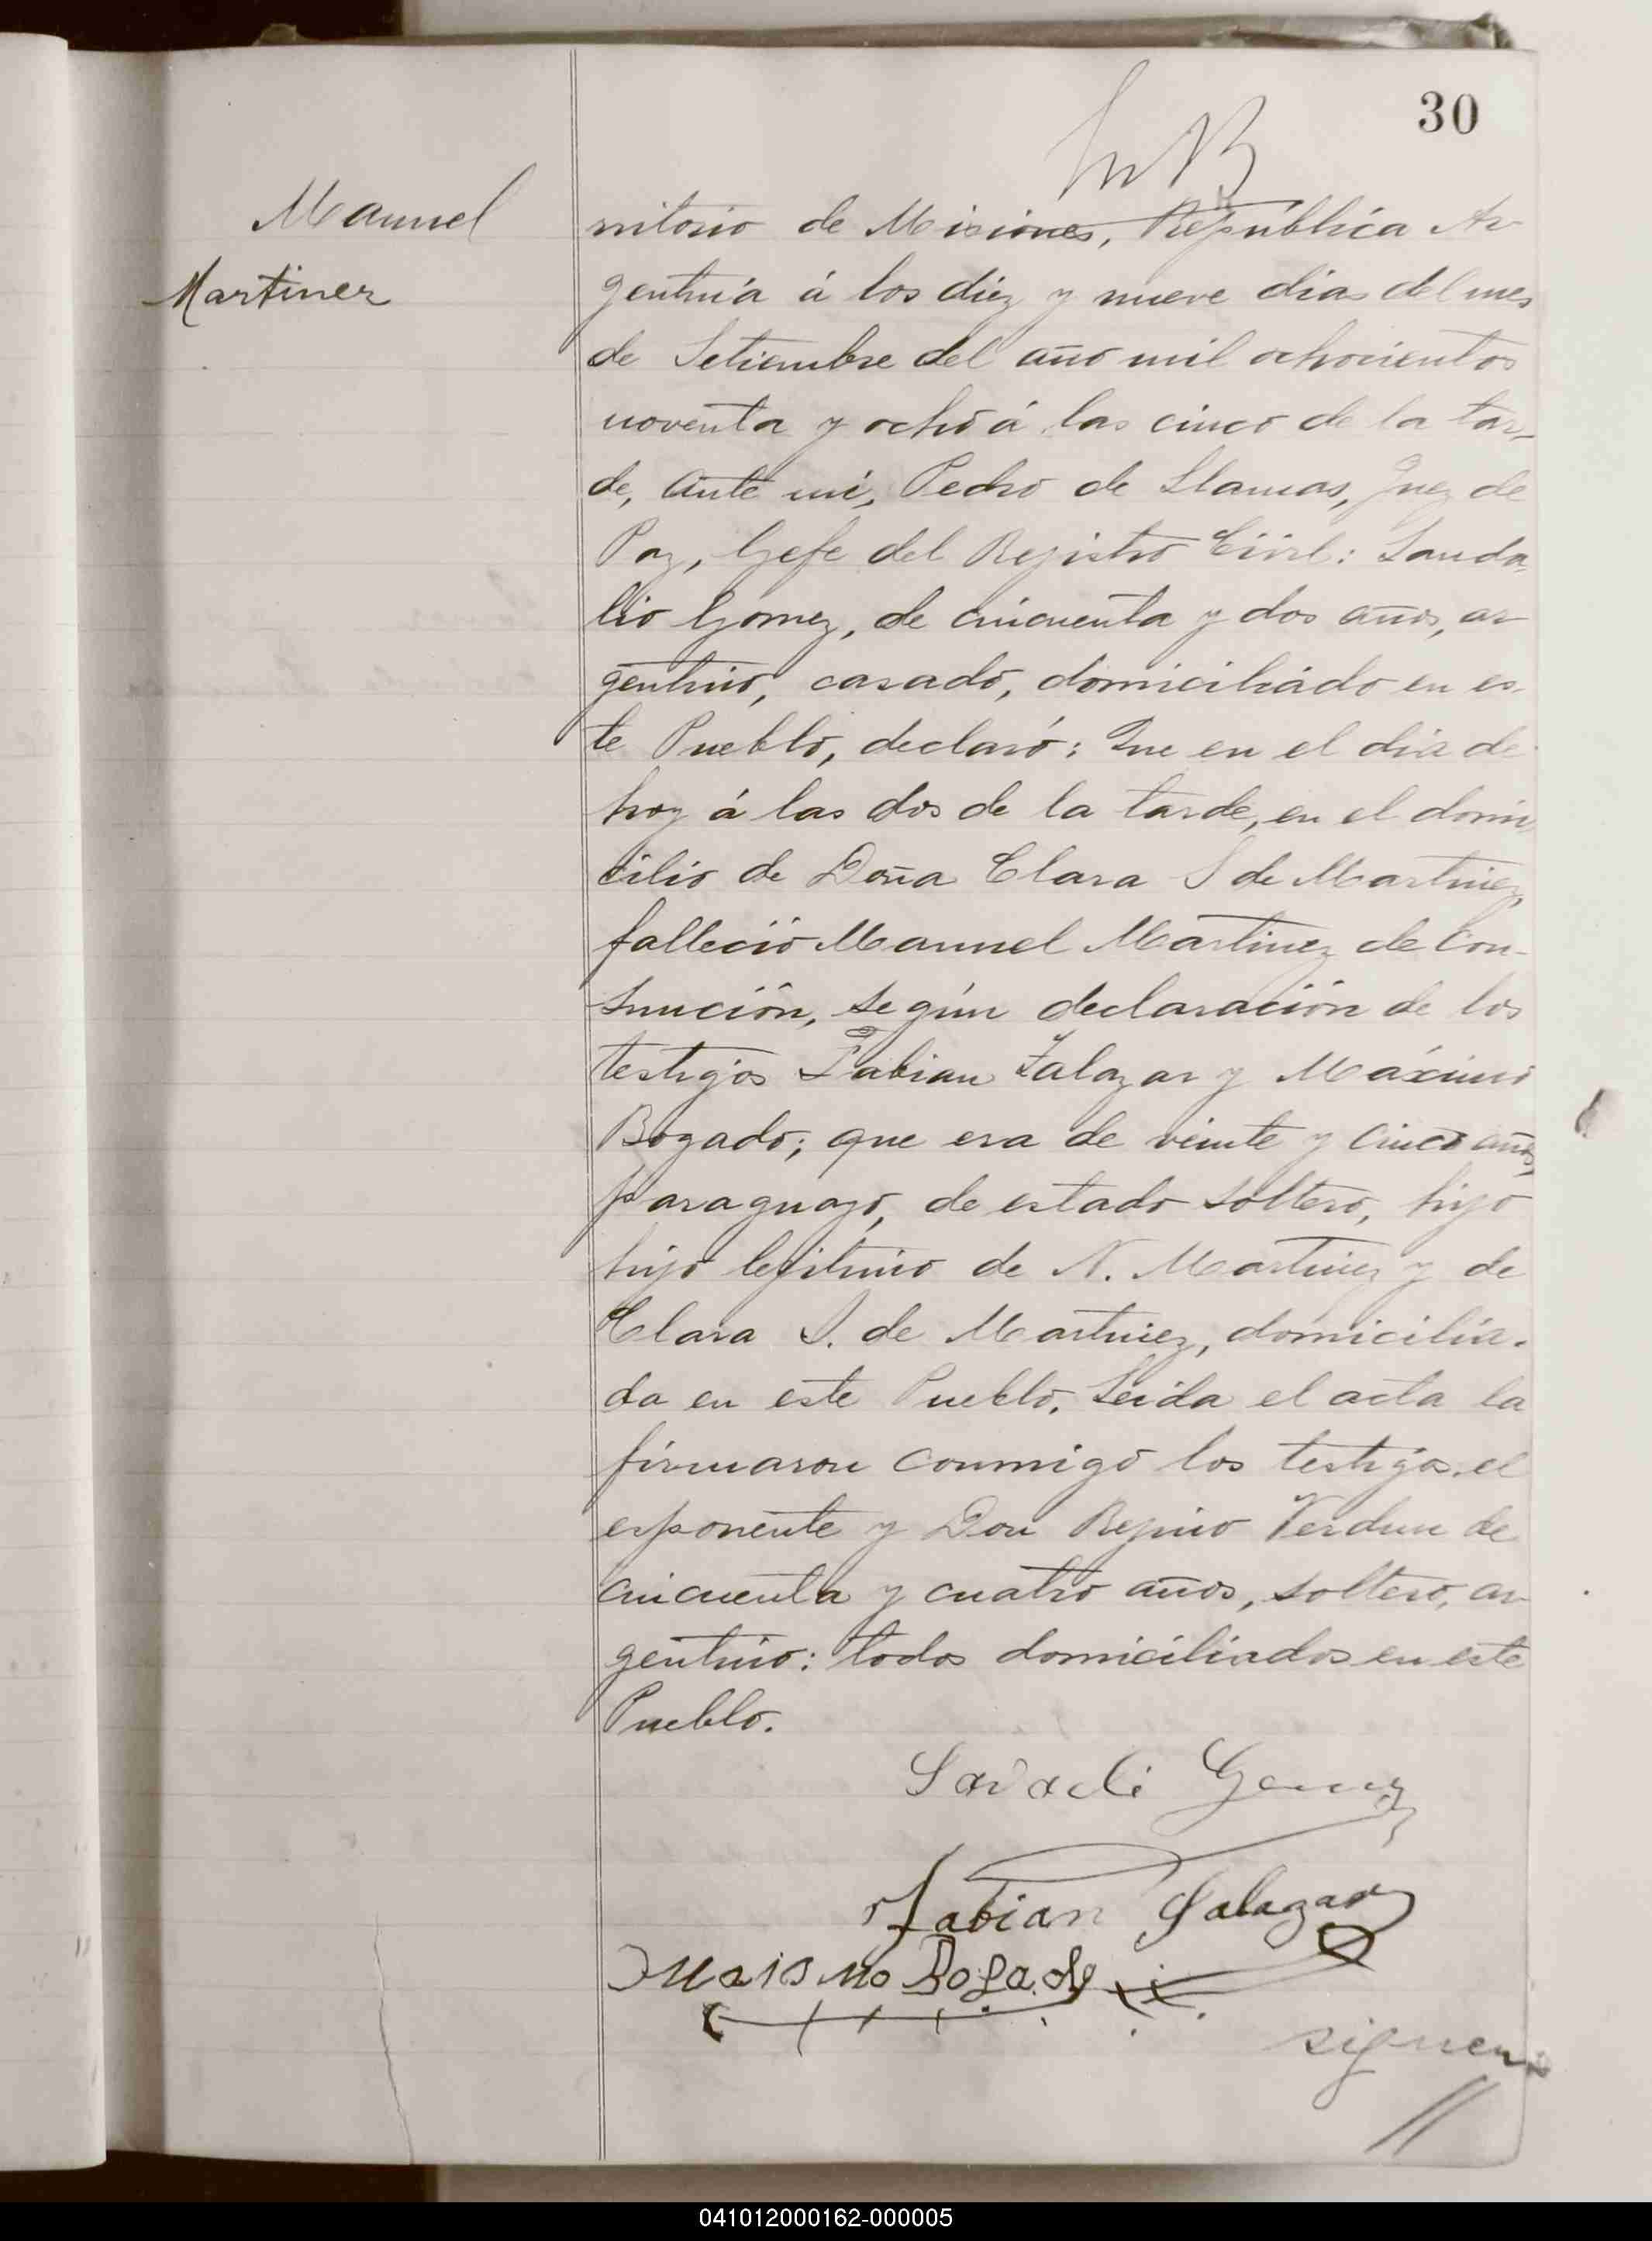 30
Manuel
Martinez
rritorio de Misiones, República Ar
gentina á los diez y nueve dias del mes
de Setiembre del año mil ochocientos
noventa y ocho á las cinco de la tar-
de, ante mi, Pedro de Llamas, Juez de
Paz, Gefe del Registro Civil: Sanda-
lio Gomez, de cincuenta y dos años, ar
gentino, casado, domiciliado en es-
te Pueblo, declaró: Que en el dia de
hoy á las dos de la tarde, en el domi
cilio de Doña Clara S de Martinez,
falleció Manuel Martinez de Con-
sunción, según declaración de los
testigos Fabian Zalazar y Máximo
Bogado; que era de veinte y cinco años,
paraguayo, de estado soltero, hijo
hijo legitimo de N. Martinez y de
Clara S. de Martinez, domicilia-
da en este Pueblo. Leida el acta la
firmaron conmigo los testigos, el
esponente y Don Regino Verdun de
cincuenta y cuatro años, soltero, ar
gentino: todos domiciliados en este
Pueblo.
Fabian Salazar
siguen
041012000162-000005